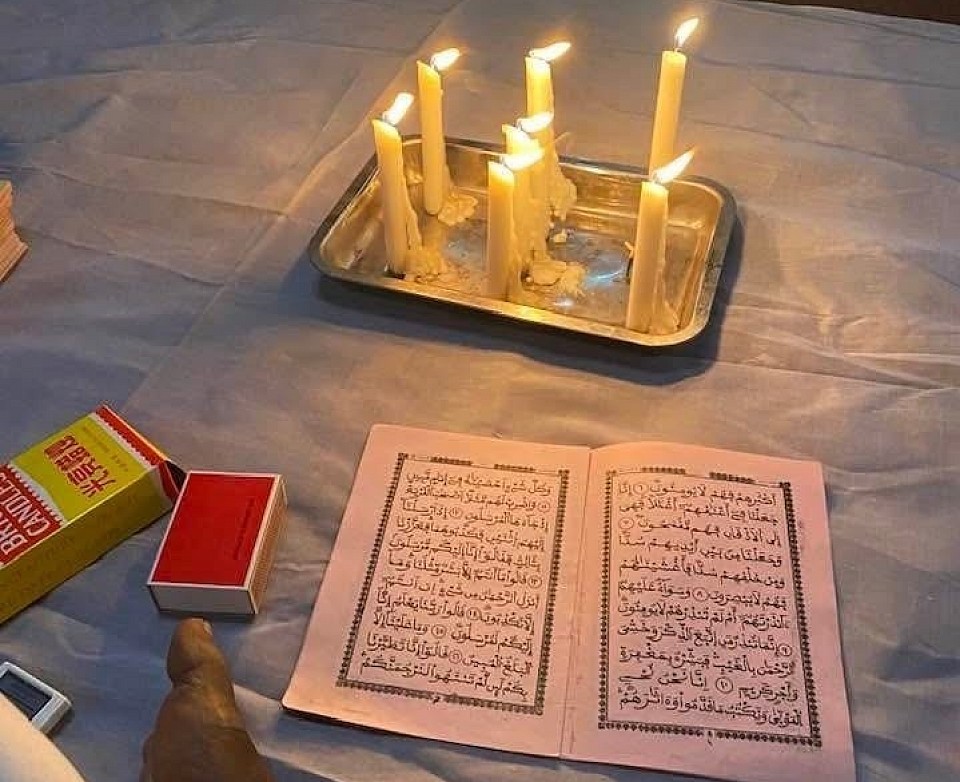 أكثرهم فهم لا يومنون ۞ إنا
جعلنا في أعنقهم أغللا فهي
إلى ألاذقان فهم مقمحون ۞
وجعلنا من بين أيديهم سدا
ومن خلفهم سدا فأغشينهم
فهم لا يبصرون ۞ وسواء عليهم
ءانذرتهم أم لم تنذرهم لا يومنون
۞ إنما تنذر من إتبع الذكر وخشي
الرحمن بالغيب فبشره بمغفرة
وأجر كريم ۞ إنا نحن نحي
الموتى ونكتب ما قدموا وءاثرهم
وكل شيء احصينه في إمام مبين
۞ واضرب لهم مثلا اصحب القرية
إذ جاءها المرسلون ۞ إذ ارسلنا
إليهم اثنين فكذبوهما فعززنا
بثالث فقالوا إنا إليكم مرسلون
۞ قالوا ما أنتم إلا بشر مثلنا وما
أنزل الرحمن من شيء ان انتم
إلا تكذبون ۞ قالوا ربنا يعلم إنا
إليكم لمرسلون ۞ وما علينا إلا
البلغ المبين ۞ قالوا إنا تطيرنا
بكم لئن لم تنتهوا لنرجمنكم
CANDLES